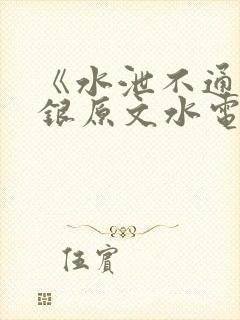 《水泄不通
銀原文水電
伍賓